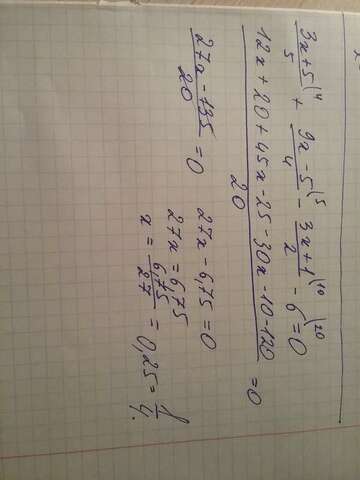 (3x+5)/5 (4 + (9x-5)/4 (5 - (3x+1)/2 (10 - 6 (20 = 0
(12x+20+45x-25-30x-10-120)/20 = 0
(27x-135)/20 = 0 27x-6,75=0
27x=6,75
x = 6,75/27 = 0,25 = 1/4.